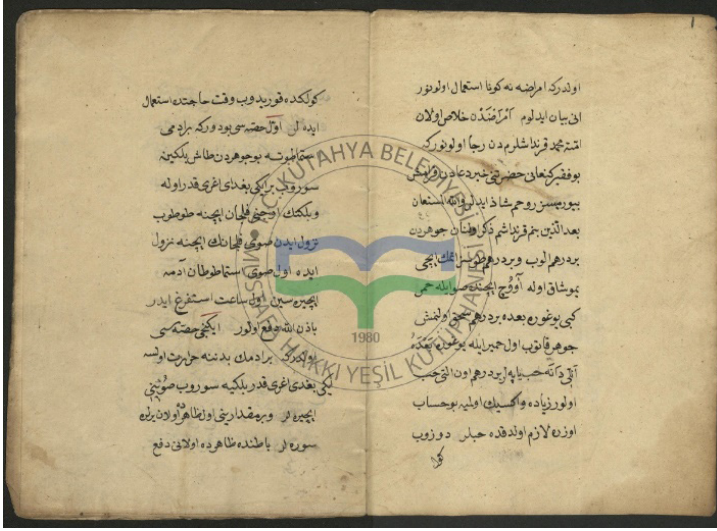 اولدركه امراضه نه كونا استعمال اولونور
انى بيان ايدلوم امراضدن خلاص اولان
امت محمد قرنداشلرمدن رجا اولونوركه
بو فقير كنعان حضرتنى خير دعادن فراموش
بيورميسز روحم شاذ ايدلر والله المستعان
بعد الذين بنم قرنداشم ذكر اولنان جوهردن
بر درهم الوب وبر درهم طوسز اتمك ايچى
يموشاق اوله آووج ايچنده صو ايله حمر
كبى يوغوره بعده بر درهم سحق اولنمش
جوهر قاتوب اول حمير ايله يوغوره بعده
دانه حب ياپه لر بر درهم اون التى حب
اولور زياده واكسيك اولميه بو حساب
اوزره لازم اولدقده حبلر دوزوب
كولكده قوريدوب وقت حاجتده استعمال
ايده لر اول حصه سى بودوركه بر ادمى
ستما طوتسه بو جوهردن طاش بلكينه
سوروب بر ايكى بغداى اغرى قدر اوله
وبلكنك اوجنى فلجان ايچنه طوطوب
نزول ايدن صوى فلجانك ايچنه نزول
ايده اول صوى استما طوطان آدمه
ايچيره سين اول ساعت استفرغ ايدر
باذن الله دفع اولور ايكنجى حصه سى
اولدركه بر ادمك بدننه حرارت اولسه
ايكى بغداى اغرى قدر بلكيه سوروب صوينى
ايچيره لر وبر مقدارينى اول ظاهر اولان يرلره
سوره لر باطنده ظاهرده اولانى دفع
KÜTAHYA BELEDİYESİ
MUSTAFA HAKKI YEŞİL KÜTÜPHANESİ
1980